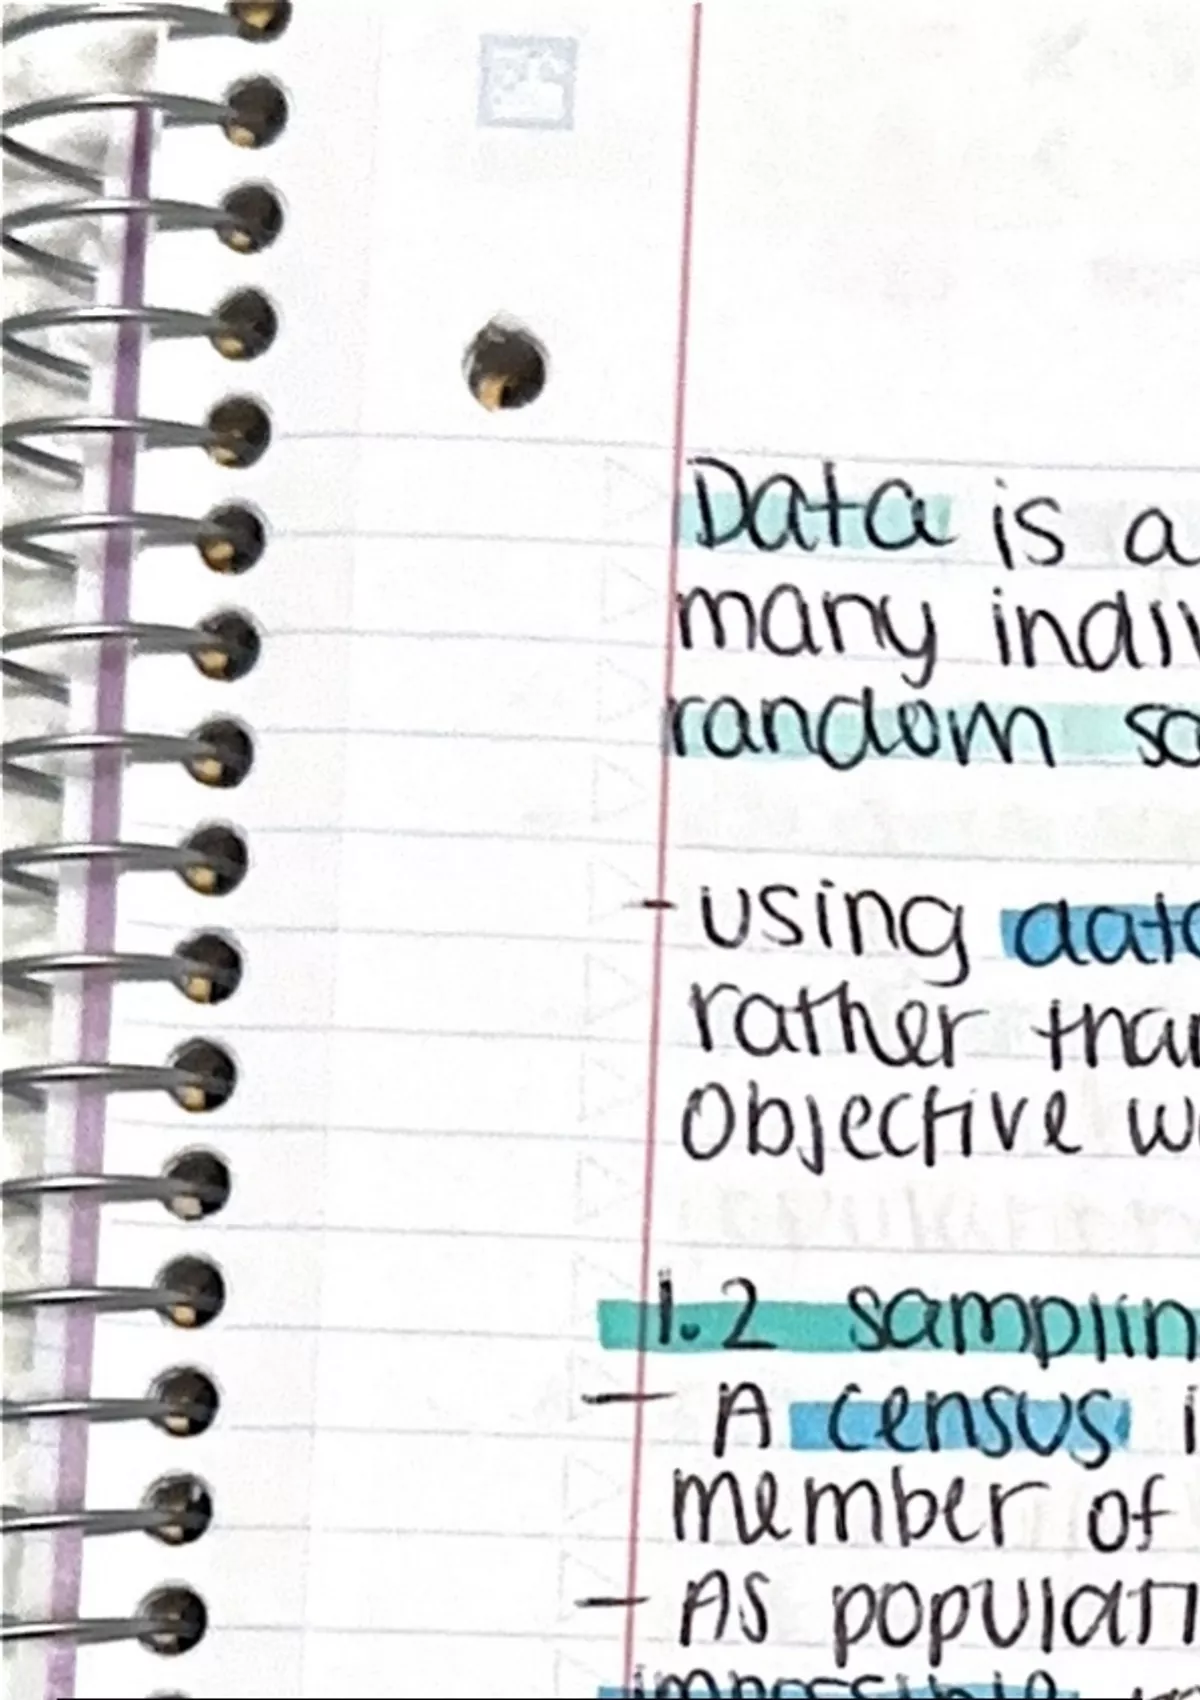 Data is a
many indiv
random sa
- using data
rather than
Objective w
1.2 samplin
- A census i
member of
- As populati
impossible